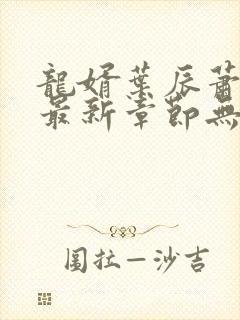 龍婿葉辰蕭
最新章節無
圖拉—沙吉